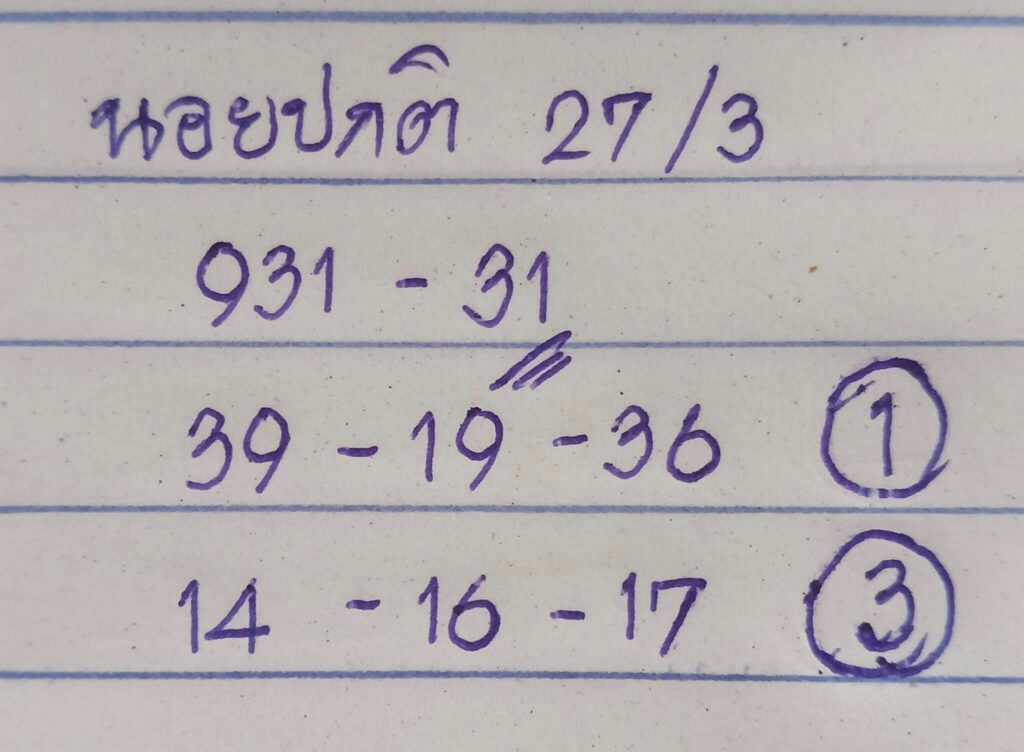 นอยปกติ 27/3
931 - 31
39 - 19 - 36 1
14 - 16 - 17 3